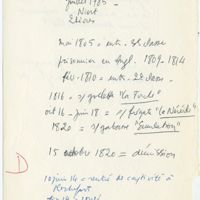 juillet 1785 -
Niort
2 Sèvres
mai 1805 = entr. 3e classe
prisonnier en Angl. 1809-1814
fév. 1810 = entr. 2e classe.
1816 = s/ goëlette "La Torche"
oct 16 - juin 18 = s/ frégate "La Néréide"
1820 = s/ gabarre "Emulation"
15 octobre 1820 = démission
D
10 juin 14 = rentré de captivité à
Rochefort